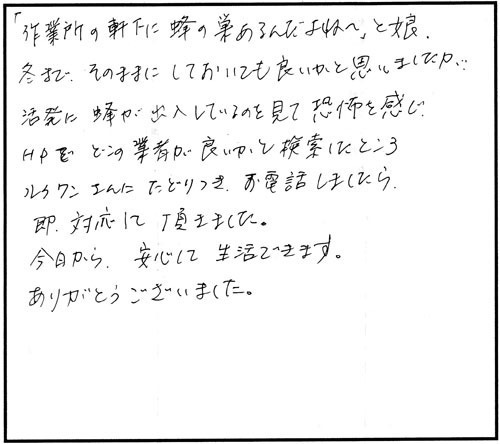 「作業所の軒下に蜂の巣あるんだよね〜」と娘.
冬まで.そのままにしておいても良いかと思いましたが…
活発に蜂が出入しているのを見て恐怖を感じ.
HPで どこの業者が良いかと検索したところ
ルカワンさんに たどりつき.お電話しましたら.
即.対応して頂きました。
今日から.安心して生活できます。
ありがとうございました。